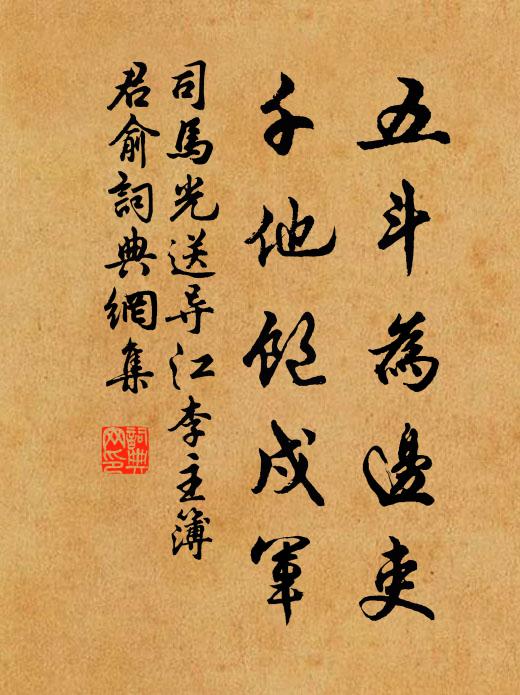 五斗為邊吏
千他飽戍軍
司馬光送导江李主簿
君俞詞典網集
詞典网印